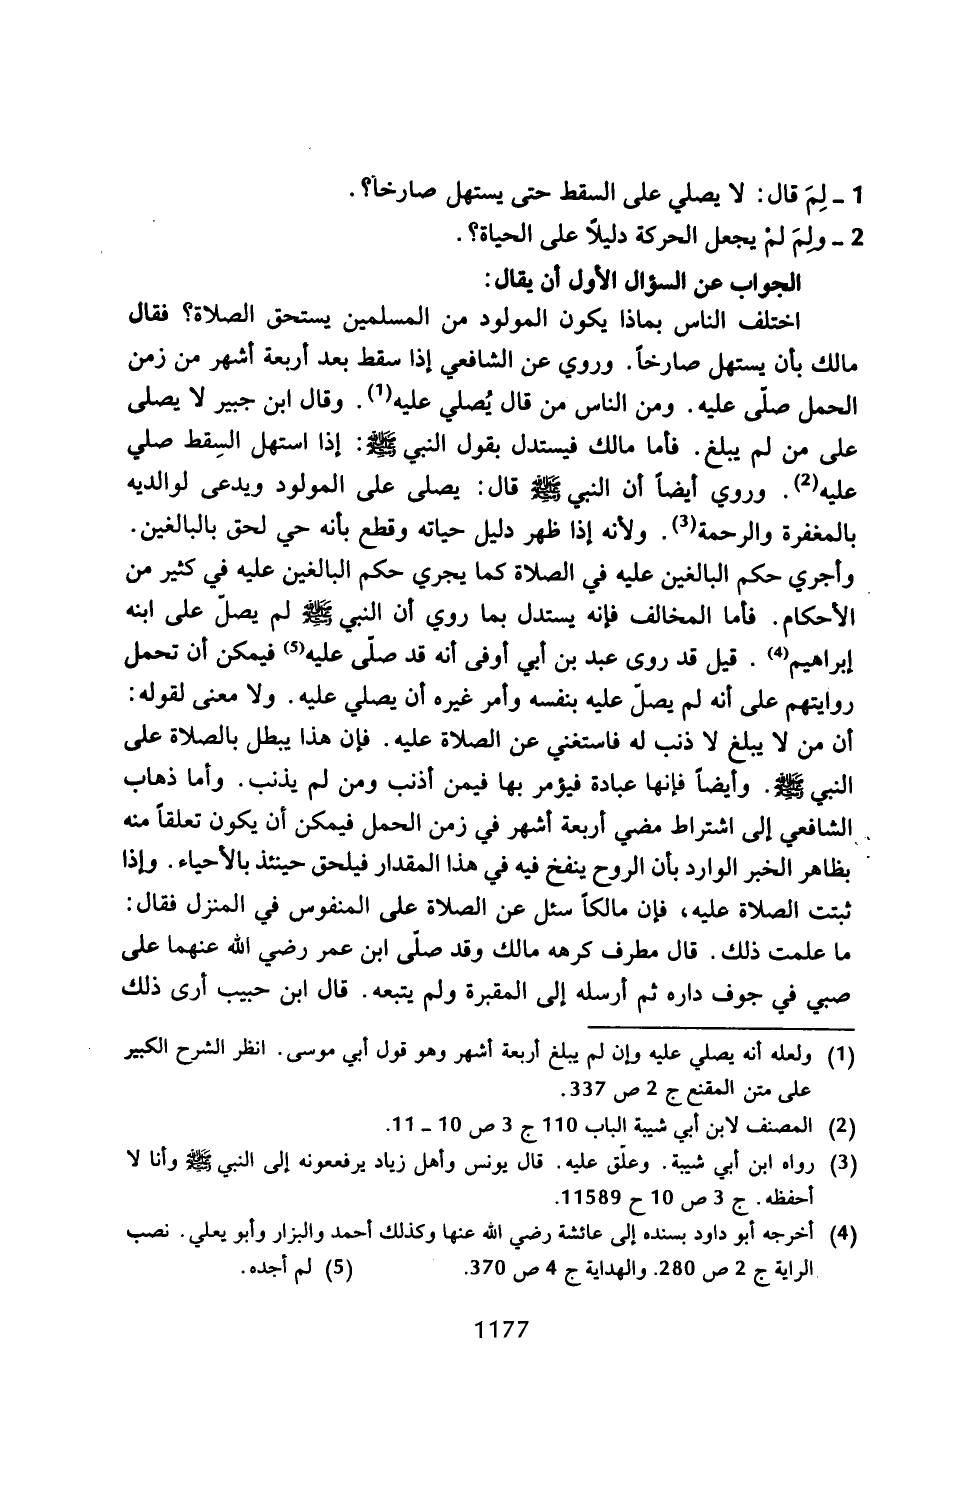 1 ـ لِمَ قال: لا يصلي على السقط حتى يستهل صارخاً؟.
2 ـ ولِمَ لمْ يجعل الحركة دليلاً على الحياة؟.
الجواب عن السؤال الأول أن يقال:
اختلف الناس بماذا يكون المولود من المسلمين يستحق الصلاة؟ فقال
مالك بأن يستهل صارخاً. وروي عن الشافعي إذا سقط بعد أربعة أشهر من زمن
الحمل صلّى عليه. ومن الناس من قال يُصلي عليه(1). وقال ابن جبير لا يصلى
على من لم يبلغ. فأما مالك فيستدل بقول النبي ﷺ: إذا استهل السِقط صلي
عليه(2). وروي أيضاً أن النبي ﷺ قال: يصلى على المولود ويدعى لوالديه
بالمغفرة والرحمة(3). ولأنه إذا ظهر دليل حياته وقطع بأنه حي لحق بالبالغين.
وأجري حكم البالغين عليه في الصلاة كما يجري حكم البالغين عليه في كثير من
الأحكام. فأما المخالف فإنه يستدل بما روي أن النبي ﷺ لم يصلّ على ابنه
إبراهيم(4). قيل قد روى عبد بن أبي أوفى أنه قد صلّى عليه(5) فيمكن أن تحمل
روايتهم على أنه لم يصلّ عليه بنفسه وأمر غيره أن يصلي عليه. ولا معنى لقوله:
أن من لا يبلغ لا ذنب له فاستغني عن الصلاة عليه. فإن هذا يبطل بالصلاة على
النبي ﷺ. وأيضاً فإنها عبادة فيؤمر بها فيمن أذنب ومن لم يذنب. وأما ذهاب
الشافعي إلى اشتراط مضي أربعة أشهر في زمن الحمل فيمكن أن يكون تعلقاً منه
بظاهر الخبر الوارد بأن الروح ينفخ فيه في هذا المقدار فيلحق حينئذ بالأحياء. وإذا
ثبتت الصلاة عليه، فإن مالكاً سئل عن الصلاة على المنفوس في المنزل فقال:
ما علمت ذلك. قال مطرف كرهه مالك وقد صلّى ابن عمر رضي الله عنهما على
صبي في جوف داره ثم أرسله إلى المقبرة ولم يتبعه. قال ابن حبيب أرى ذلك
(1) ولعله أنه يصلي عليه وإن لم يبلغ أربعة أشهر وهو قول أبي موسى. انظر الشرح الكبير
على متن المقنع ج 2 ص 337.
(2) المصنف لابن أبي شيبة الباب 110 ج 3 ص 10 ـ 11.
(3) رواه ابن أبي شيبة. وعلّق عليه. قال يونس وأهل زياد يرفععونه إلى النبي ﷺ وأنا لا
أحفظه. ج 3 ص 10 ح 11589.
(4) أخرجه أبو داود بسنده إلى عائشة رضي الله عنها وكذلك أحمد والبزار وأبو يعلي. نصب
الراية ج 2 ص 280. والهداية ج 4 ص 370. (5) لم أجده.
1177